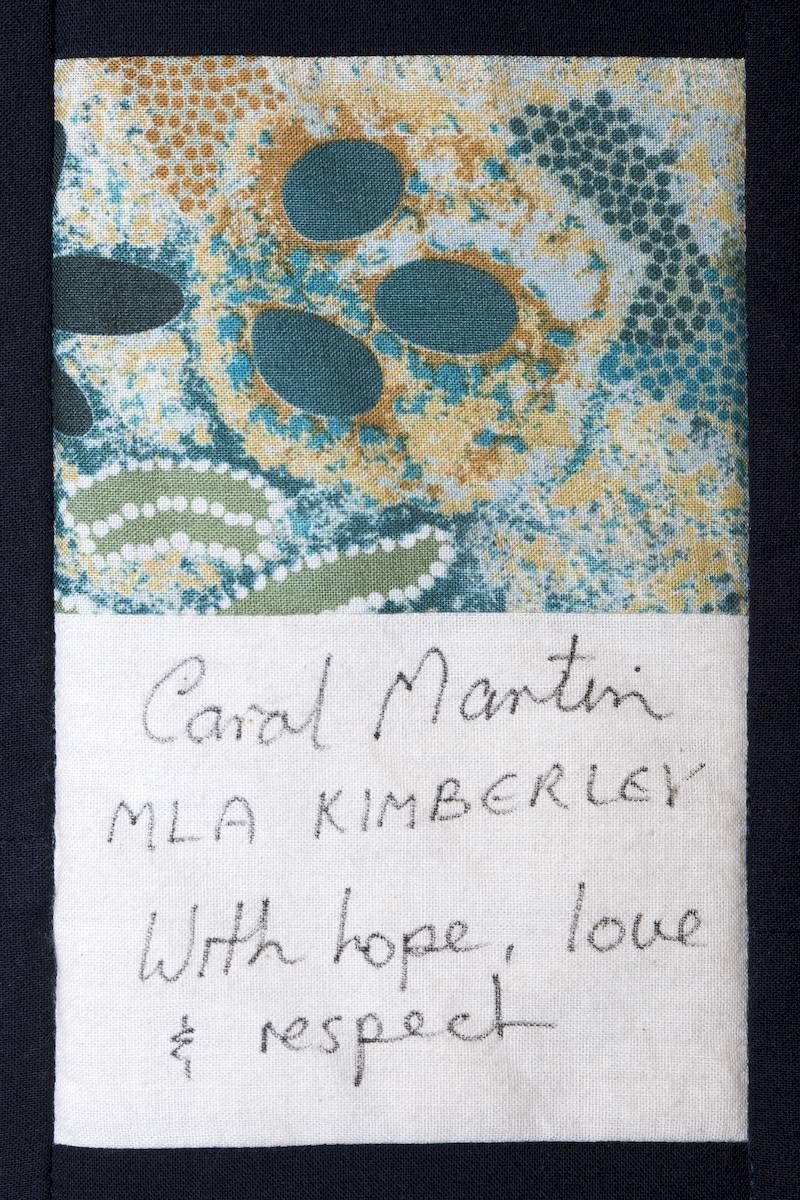 Carol Martin
MLA KIMBERLEY
With hope, love
& respect